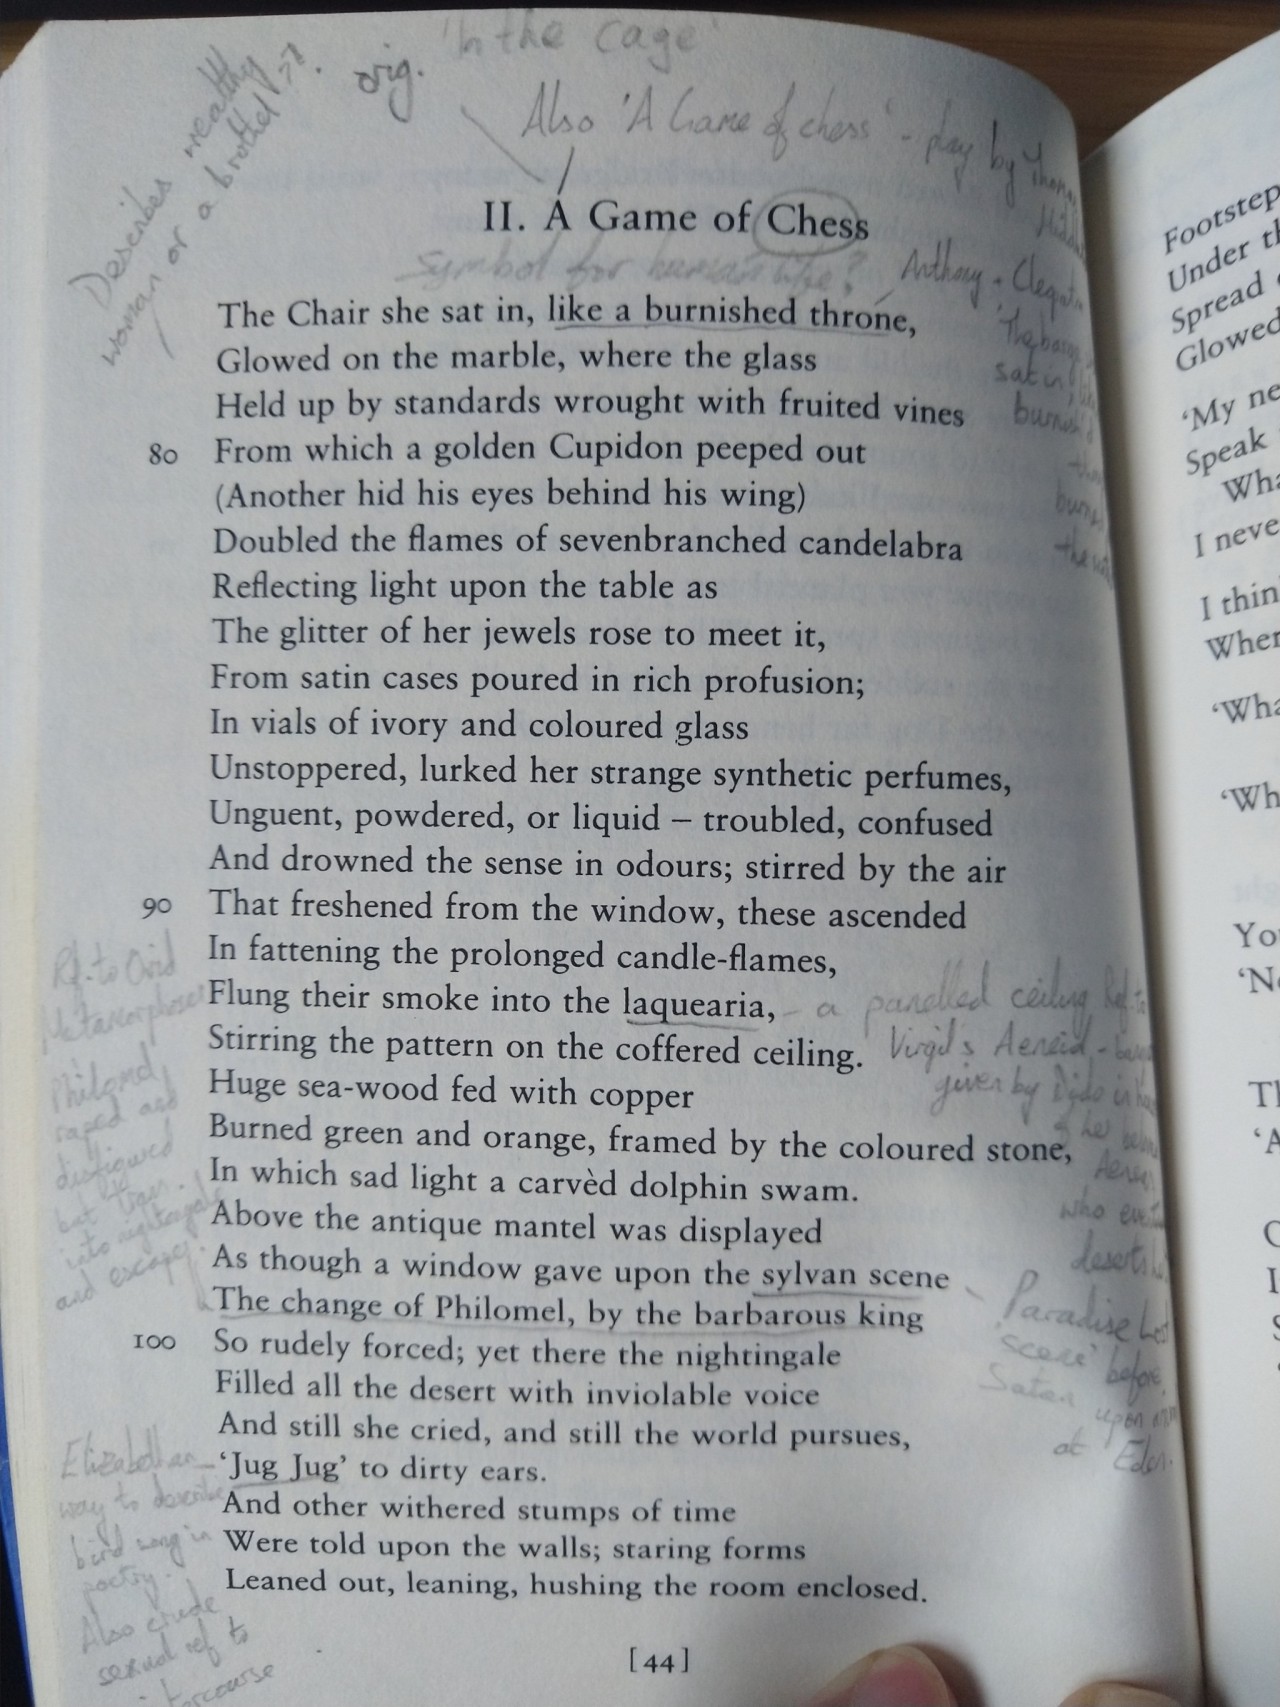 'In the cage'
orig.
Also 'A Game of chess' - play by Thomas
Describes wealthy
woman or a brothel ??.
II. A Game of Chess
symbol for human life?
Anthony - Cleopatra
'The barge
sat in, like
burnish'd
The Chair she sat in, like a burnished throne,
Glowed on the marble, where the glass
Held up by standards wrought with fruited vines
80 From which a golden Cupidon peeped out
(Another hid his eyes behind his wing)
Doubled the flames of sevenbranched candelabra
Reflecting light upon the table as
The glitter of her jewels rose to meet it,
From satin cases poured in rich profusion;
In vials of ivory and coloured glass
Unstoppered, lurked her strange synthetic perfumes,
Unguent, powdered, or liquid – troubled, confused
And drowned the sense in odours; stirred by the air
90 That freshened from the window, these ascended
In fattening the prolonged candle-flames,
Flung their smoke into the laquearia,
Stirring the pattern on the coffered ceiling.
Huge sea-wood fed with copper
Burned green and orange, framed by the coloured stone,
In which sad light a carvèd dolphin swam.
Above the antique mantel was displayed
As though a window gave upon the sylvan scene
The change of Philomel, by the barbarous king
100 So rudely forced; yet there the nightingale
Filled all the desert with inviolable voice
And still she cried, and still the world pursues,
'Jug Jug' to dirty ears.
And other withered stumps of time
Were told upon the walls; staring forms
Leaned out, leaning, hushing the room enclosed.
- a panelled ceiling. Ref. to
Virgil's Aeneid, -
given by Dido in
who
deserts
Paradise Lost
'scene' before
Satan upon
at Eden.
Rf. to Ovid
Metamorphoses
Philomel,
raped and
disfigured
but tran.
into nightingale
and escapes.
Elizabethan
way to describe
bird song in
poetry.
Also crude
sexual ref to
intercourse
[44]
Footstep
Under
Spread
Glowed
'My ne
Speak
Wha
I neve
I thin
Wher
'Wha
'Wh
Yo
'N
Th
'A